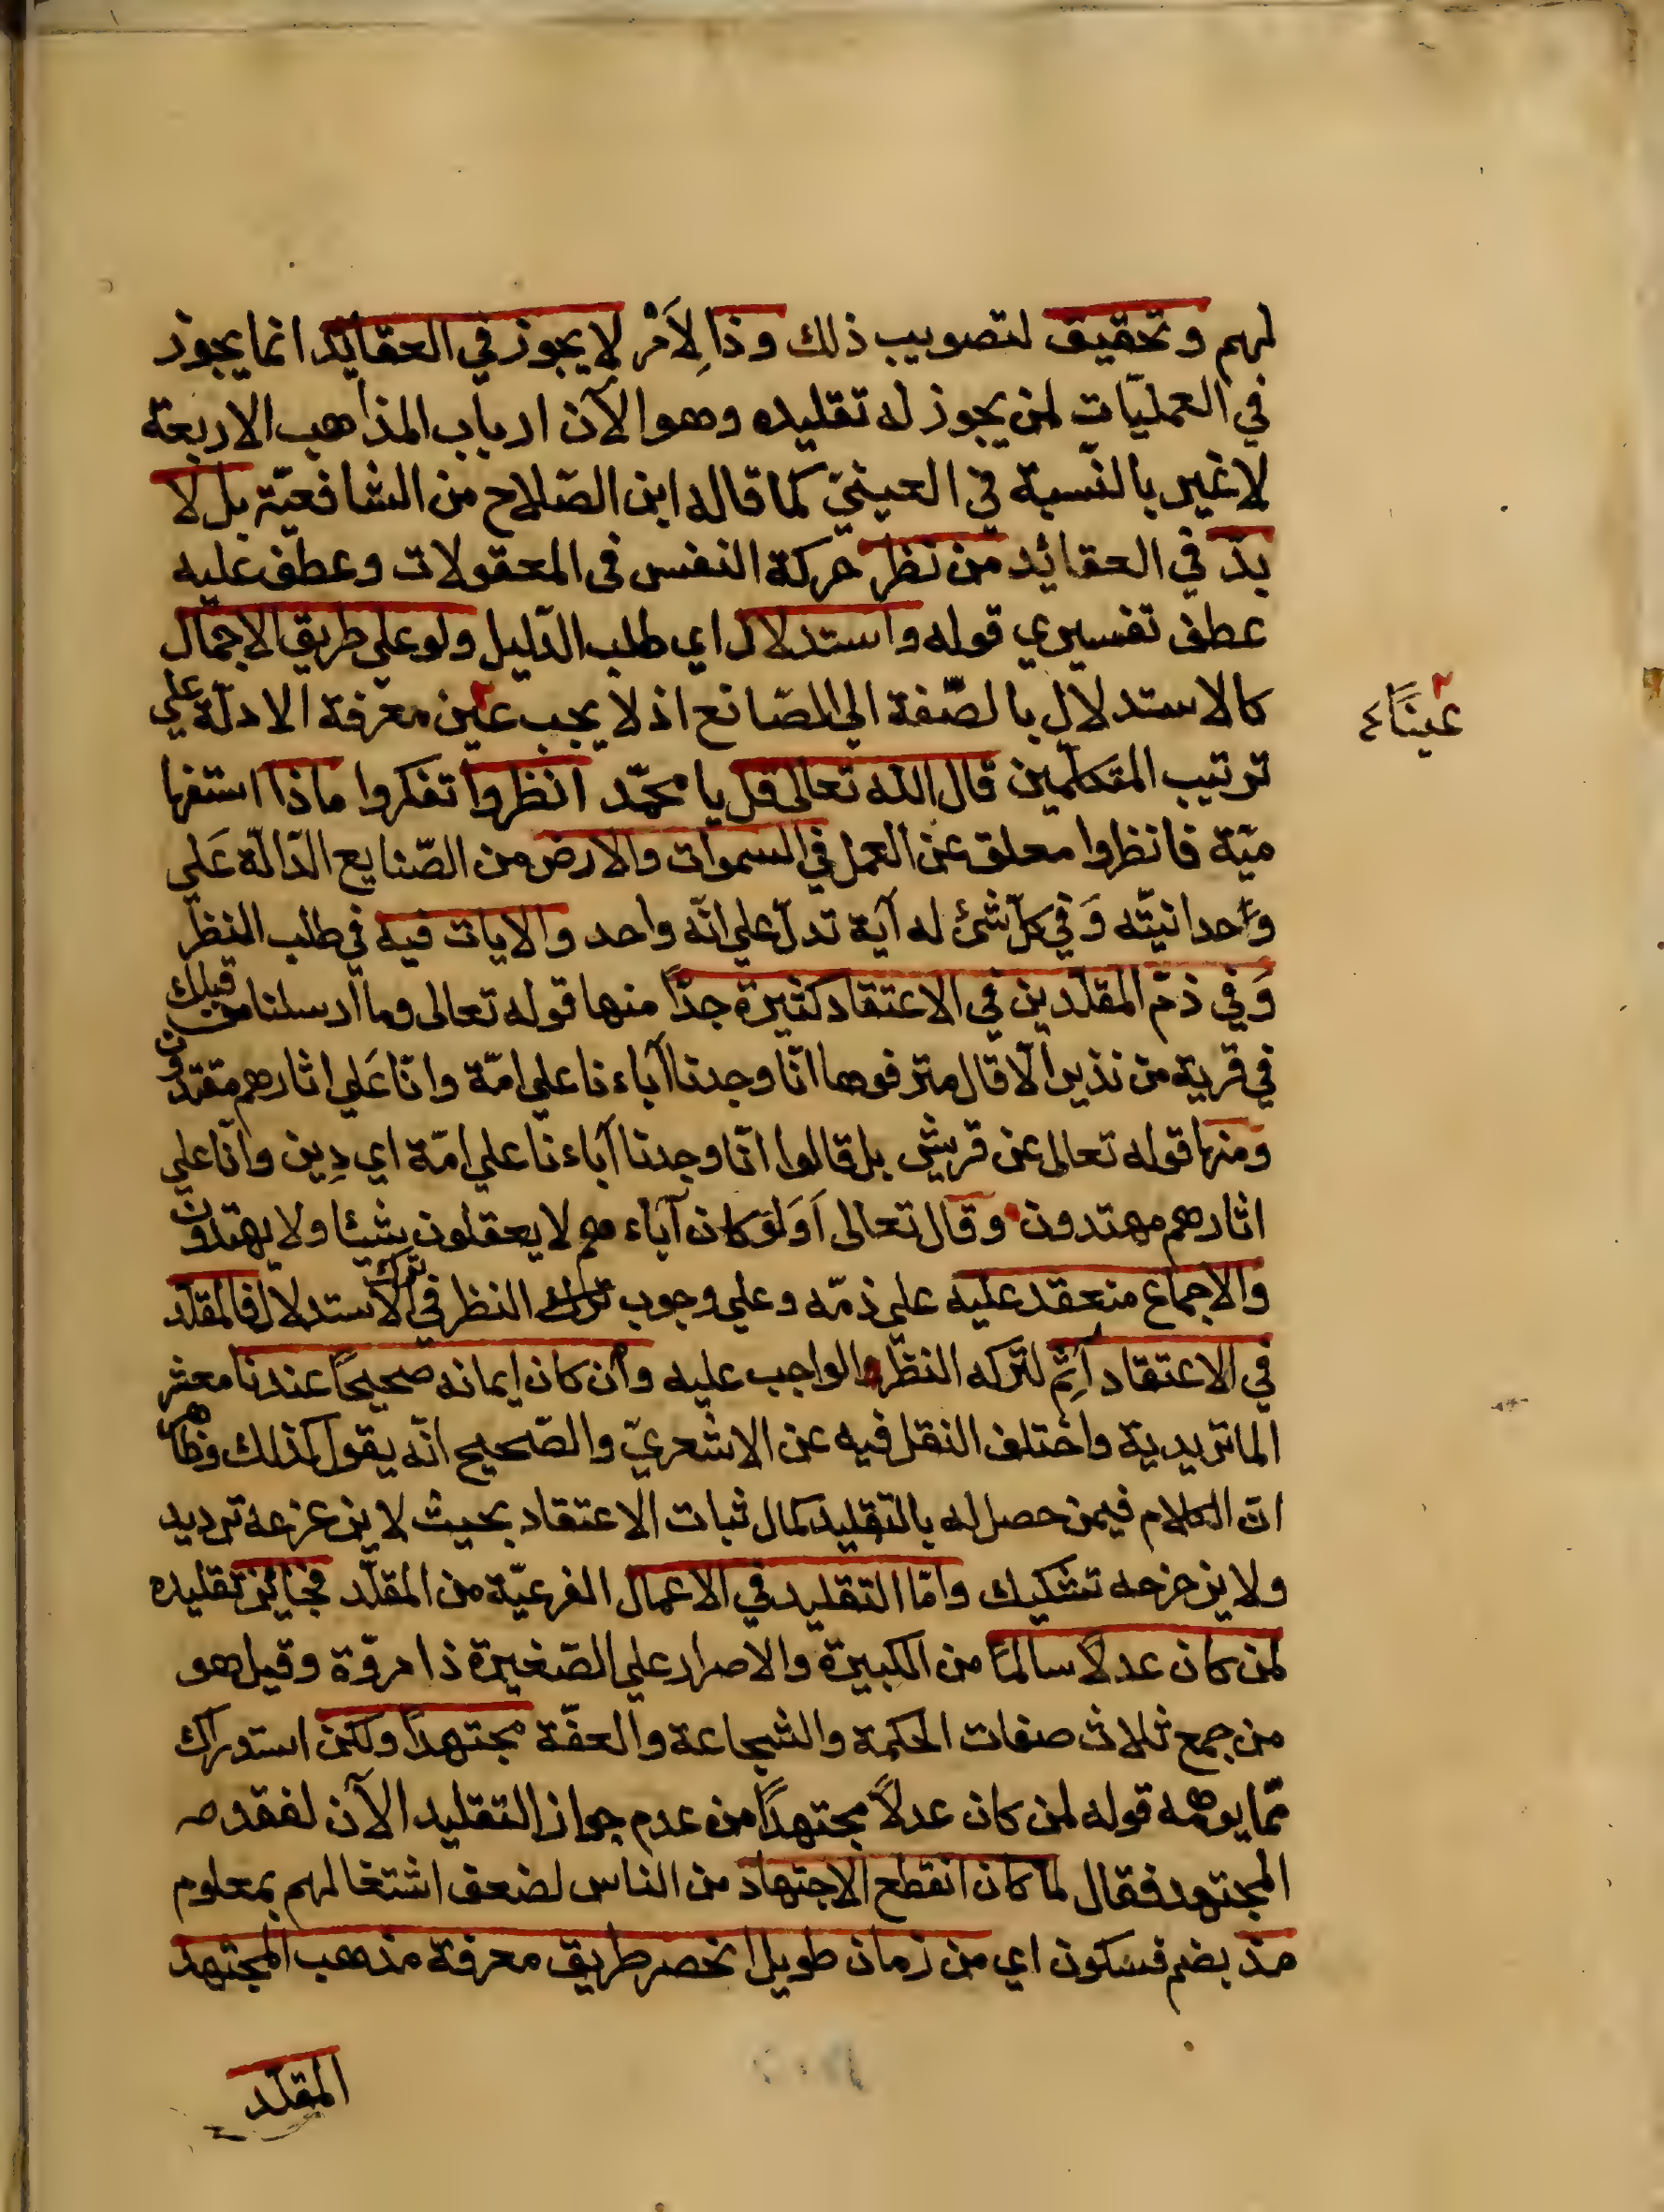 لهم وتحقيق لتصويب ذلك وذا لِأَمْر لا يجوز في العقائد انما يجوز
في العمليّات لمن يجوز له تقليده وهو الآن ارباب المذاهب الاربعة
لاغير بالنّسبة في العينيّ كما قاله ابن الصّلاح من الشافعيّة بل لا
بدّ في العقائد من نظر حركة النفس في المعقولات وعطف عليه
عطف تفسيري قوله واستدلال اي طلب الدّليل ولو على طريق الاجمال
كالاستدلال بالصّفة الى الصّانع اذ لا يجب عين معرفة الادلّة علي
عينًا
ترتيب المتكلّمين قال الله تعالى قل يا محمّد انظروا تفكروا ماذا استفها
ميّة فانظروا معلق عن العمل في السموات والارض من الصّنايع الدّالّة عَلي
وَاحدانيّته وَفي كلّ شئ له آية تدلّ علي انّه واحد والايات فيه في طلب النظر
وَفي ذمّ المقلّدين في الاعتقاد كثيرة جدّاً منها قوله تعالى وما ارسلنا من قبلك
في قرية من نذير الّا قال مترفوها انّا وجدنا آباءنا علي امّة وانّا عَلي اثارهم مقتدون
ومنها قوله تعالى عن قريش بل قالوا انّا وجدنا آباءنا علي امّة اي دِين وانّا علي
اثارهم مهتدون وقال تعالى اَوَلَوْ كان آباءهم لا يعقلون شيئا ولا يهتدون
والاجماع منعقد عليه علي ذمّه وعلي وجوب ترك النظر في ترك الاستدلال فالمقلّد
في الاعتقاد آثِم لتركه النظر الواجب عليه وان كان ايمانه صحيحًا عندنا معشر
الماتريدية واختلف النقل فيه عن الاشعريّ والصّحيح انّه يقول كذلك وظاهر
انّ الكلام فيمن حصل له بالتّقليد كمال ثبات الاعتقاد بحيث لا يزعزعه ترديد
ولا يزحزحه تشكيك وامّا التقليد في الاعمال الفرعيّة من المقلّد فجايز تقليده
لمن كان عدلًا سالمًا من الكبيرة والاصرار علي الصّغيرة ذا مروّة وقيل هو
من جمع ثلاث صفات الحكمة والشجاعة والعفّة مجتهداً ولكن استدراك
ممّا يوهمه قوله لمن كان عدلاً مجتهداً من عدم جواز التقليد الآن لفقد
المجتهد فقال لما كان انقطع الاجتهاد من الناس لضعف اشتغالهم بمعلوم
منذ بضم فسكون اي من زمان طويل انحصر طريق معرفة مذهب المجتهد
المقلّد